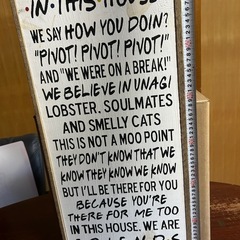 ·IN·THIS·HOUSE·
WE SAY HOW YOU DOIN?
"PIVOT! PIVOT! PIVOT!"
AND "WE WERE ON A BREAK!"
WE BELIEVE IN UNAGI
LOBSTER, SOULMATES
AND SMELLY CATS
THIS IS NOT A MOO POINT
THEY DON'T KNOW THAT WE
KNOW THEY KNOW WE KNOW
BUT I'LL BE THERE FOR YOU
BECAUSE YOU'RE
THERE FOR ME TOO
IN THIS HOUSE. WE ARE
F·R·I·E·N·D·S